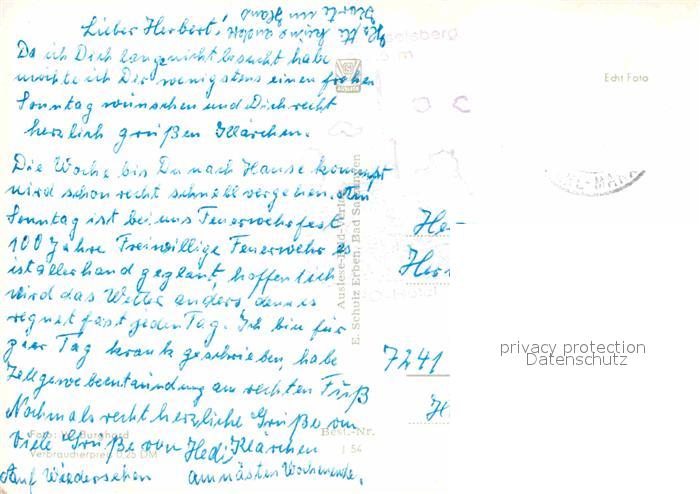 Lieber Herbert!
Da ich Dich lange nicht besucht habe
möchte ich Dir wenigstens einen frohen
Sonntag wünschen und Dich recht
herzlich grüßen Klärchen.
Die Woche bis Du nach Hause kommst
wird schon recht schnell vergehen. Am
Sonntag ist bei uns Feuerwehrfest
100 Jahre Freiwillige Feuerwehr es
ist allerhand geplant, hoffentlich
wird das Wetter anders denn es
regnet fast jeden Tag. Ich bin für
paar Tag krank geschrieben, habe
Zellgewebeentzündung am rechten Fuß
Nochmals recht herzliche Grüße von
Viele Grüße von Hedi Klärchen
Auf Wiedersehen am nästen Wochenende.
Foto: W. Burghard
Verbraucherpreis 0,25 DM
Best.-Nr.
J 54
Auslese-Bild-Verlag
E. Schulz Erben, Bad Salzungen
Echt Foto
He-
Her
7241
H
privacy protection
Datenschutz